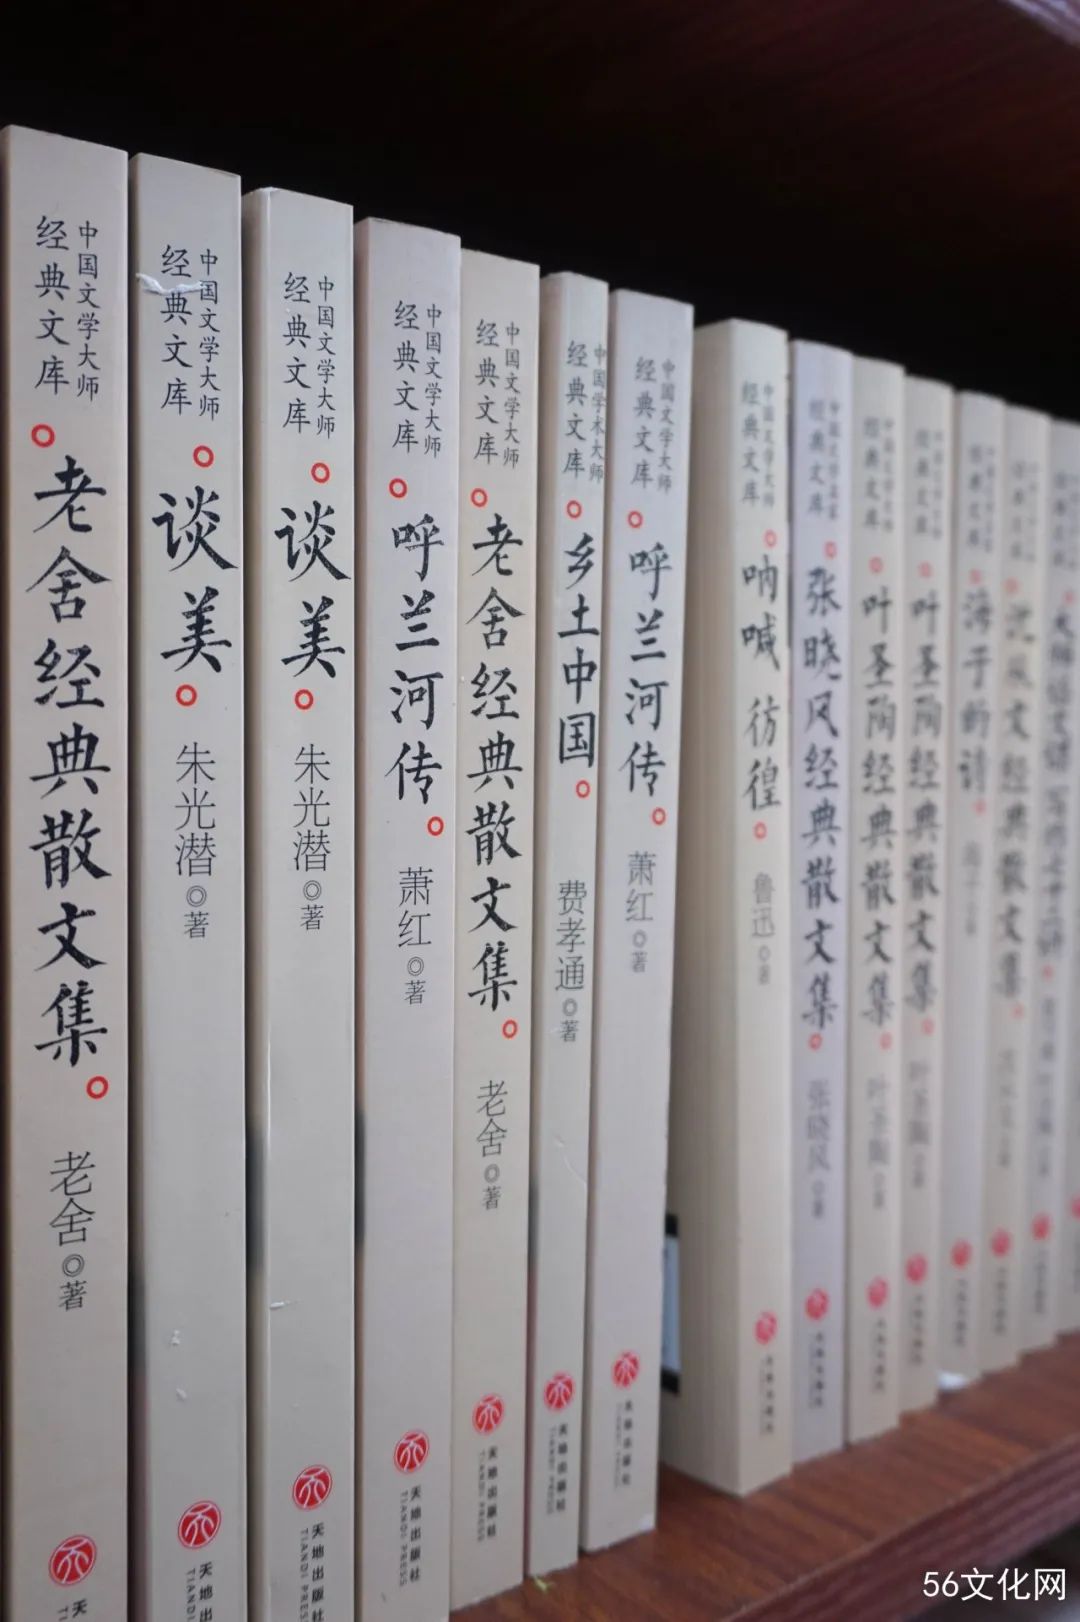 中国文学大师
经典文库
老舍经典散文集
老舍◎著
中国文学大师
经典文库
谈美
朱光潜◎著
天地出
TIANDI
中国文学大师
经典文库
谈美
朱光潜◎著
天地出版社
TIANDI PRES
中国文学大师
经典文库
呼兰河传
萧红◎著
天地出版社
TIANDI PRESS
中国文学大师
经典文库
老舍经典散文集
老舍◎著
天地出版社
TIANDI PRESS
中国学术大师
经典文库
乡土中国
费孝通◎著
天地出版社
TIANDI PRESS
中国文学大师
经典文库
呼兰河传
萧红◎著
天地出版社
TIANDI PRESS
中国文学大师
经典文库
呐喊 彷徨
鲁迅◎著
天地出版社
经典文库
张晓风经典散文集
张晓风◎著
经典文库
叶圣陶经典散文集
叶圣陶◎著
经典文库
叶圣陶经典散文集
叶圣陶◎著
海子的诗
沈从文经典散文集
56文化网